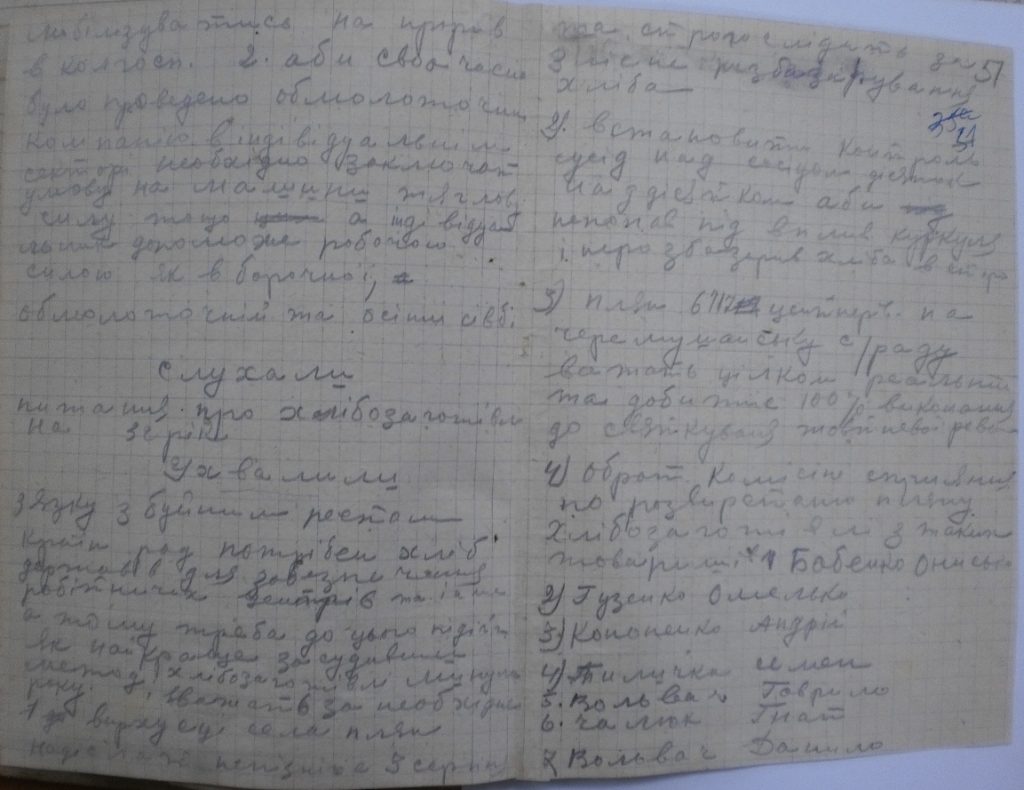 мобілізуватись на прорив
в колгосп. 2. аби своїчасно
було проведено обмолоточну
компанію в індівідуальнім
секторі необхідно заключат
умову на машини тяглову
силу тощо а інді відуал
льний допоможе робочою
силою як в борочної,
обмолоточній та осіній сівбі
Слухали
питання про хлібозаготівлю
на рік
Ухвалили
звязку з буйним ростом
Країн рад потрібен хліб
державі для забезпечення
робітничих центрів та інше
а тому треба до цього підійти
як найкраще засудивши
метод хлібозаготівлі минулого
року. Вважать за необхідне
1 в усі села плян
надіслать непізніше 3 серпня
та строго слідить за
розбазарування
хліба
51
2. Встановити контроль
сусід над сусідом десяток
над десятком аби
непопав під вплив куркуля
і нерозбазарив хліба в
3) плян 6717 центнерів на
Черемушанську с/раду
важать цілком реальний
та добитись 100% виконання
до святкування жовтневої револ
4) Обрат Комісію сприяння
по розверстанню пляну
хлібозаготівлі з таких
товаришів 1 Бабенко Онисько
2) Гузенко Омелько
3) Кононенко Андрій
4) Тимичка Семен
5. Вольвач Гаврило
6. Чалюк Гнат
7. Вольвач Данило